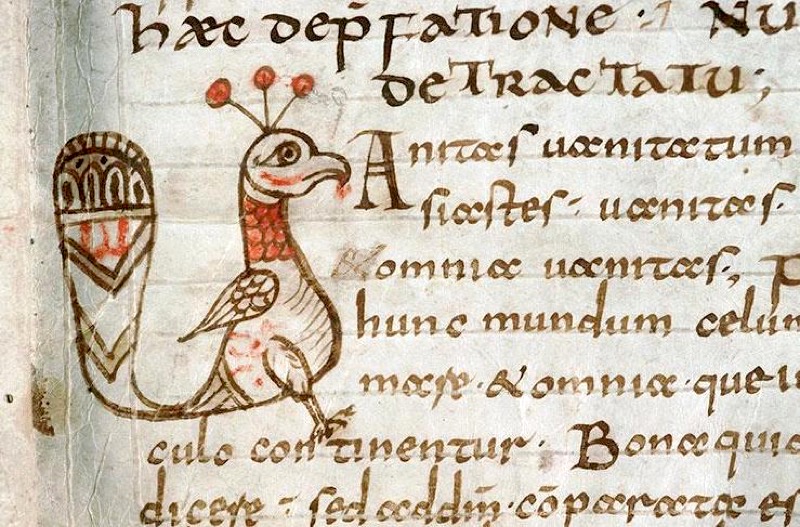 hæc dep̄fatione · NU
detractatu;
Anitas uanitatum
siastes · uanitas ·
& omnia uanitas ·, P
hunc mundum celum
mare · & omnia · que i
culo continentur · Bona quid
dicere · sed addm̄ · cōparata es